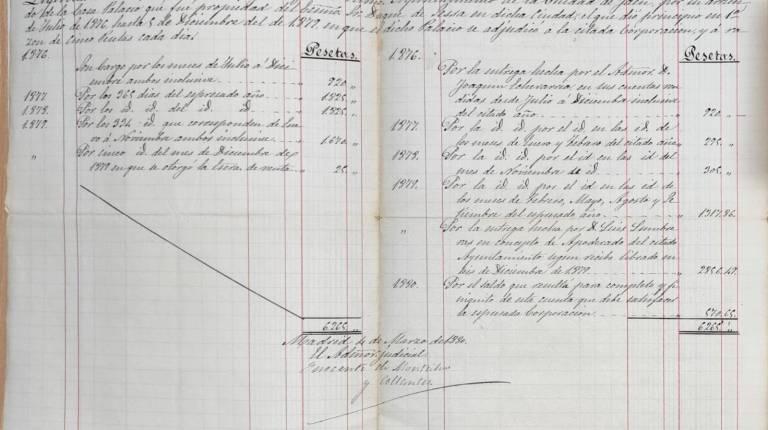 de la Casa Palacio que fué propiedad del Excmo. Sr. Duque de Sessa en dicha Ciudad, el que dio principio en 1º
de Julio de 1876 hasta 5 de Diciembre del de 1879 en que el dicho Palacio se adjudicó a la citada Corporacion, y a ra-
zon de cinco reales cada dia.
Pesetas.
1876.
Son cargo por los meses de Julio á Dici-
embre ambos inclusive 920 "
1877 Por los 365 dias del espresado año 1825 "
1878. Por los id. id. del id. id. 1825 "
1879. Por los 334 id. que corresponden de Ene-
ro á Noviembre ambos inclusive 1670 "
" Por cinco id. del mes de Diciembre de
1879 en que se otorgó la Escra. de venta 25 "
6265 "
Pesetas.
1876.
Por la entrega hecha por el Admor. D.
Joaquin Echevarria en sus cuentas ren-
didas desde Julio á Diciembre inclusive
del citado año 920 "
1877. Por la id. id. por el id. en las id. de
los meses de Enero y Febrero del citado año 295 "
1878. Por la id. id. por el id en las id del
mes de Noviembre de id. 305 "
1879. Por la id. id por el id en las id de
los meses de Febrero, Mayo, Agosto y Se-
tiembre del espresado año
" Por la entrega hecha por D. Luis
en concepto de Apoderado del citado
Ayuntamiento segun recibo librado en
seis de Diciembre de 1879
1880. Por el saldo que resulta para completo y fi-
niquito de esta cuenta que debe satisfacer
la espresada Corporacion 570,65
6265 "
Madrid 4 de Marzo de 1880.
El Admor. judicial
de
y